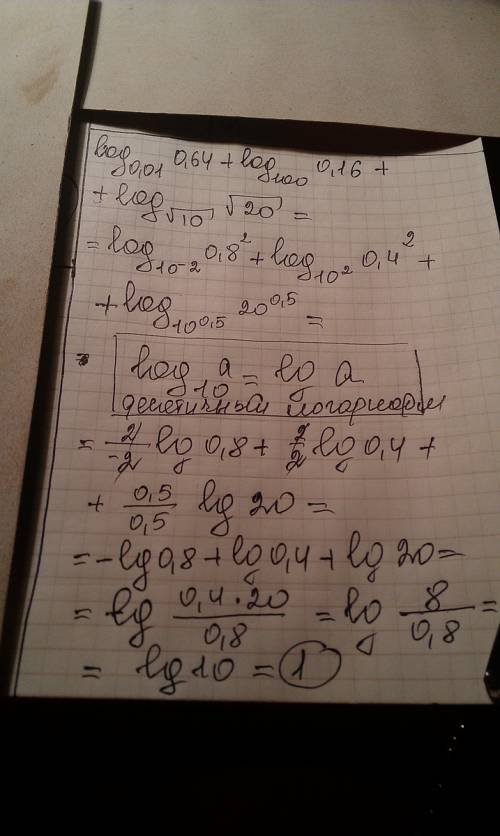 log₀,₀₁ 0,64 + log₁₀₀ 0,16 +
+ log_√10 √20 =
= log₁₀₋₂ 0,8² + log₁₀² 0,4² +
+ log₁₀0,5 20^0,5 =
= log₁₀ a = lg a
десятичный логарифм
= 2/-2 lg 0,8 + 2/2 lg 0,4 +
+ 0,5/0,5 lg 20 =
= -lg 0,8 + lg 0,4 + lg 20 =
= lg 0,4·20/0,8 = lg 8/0,8 =
= lg 10 = 1